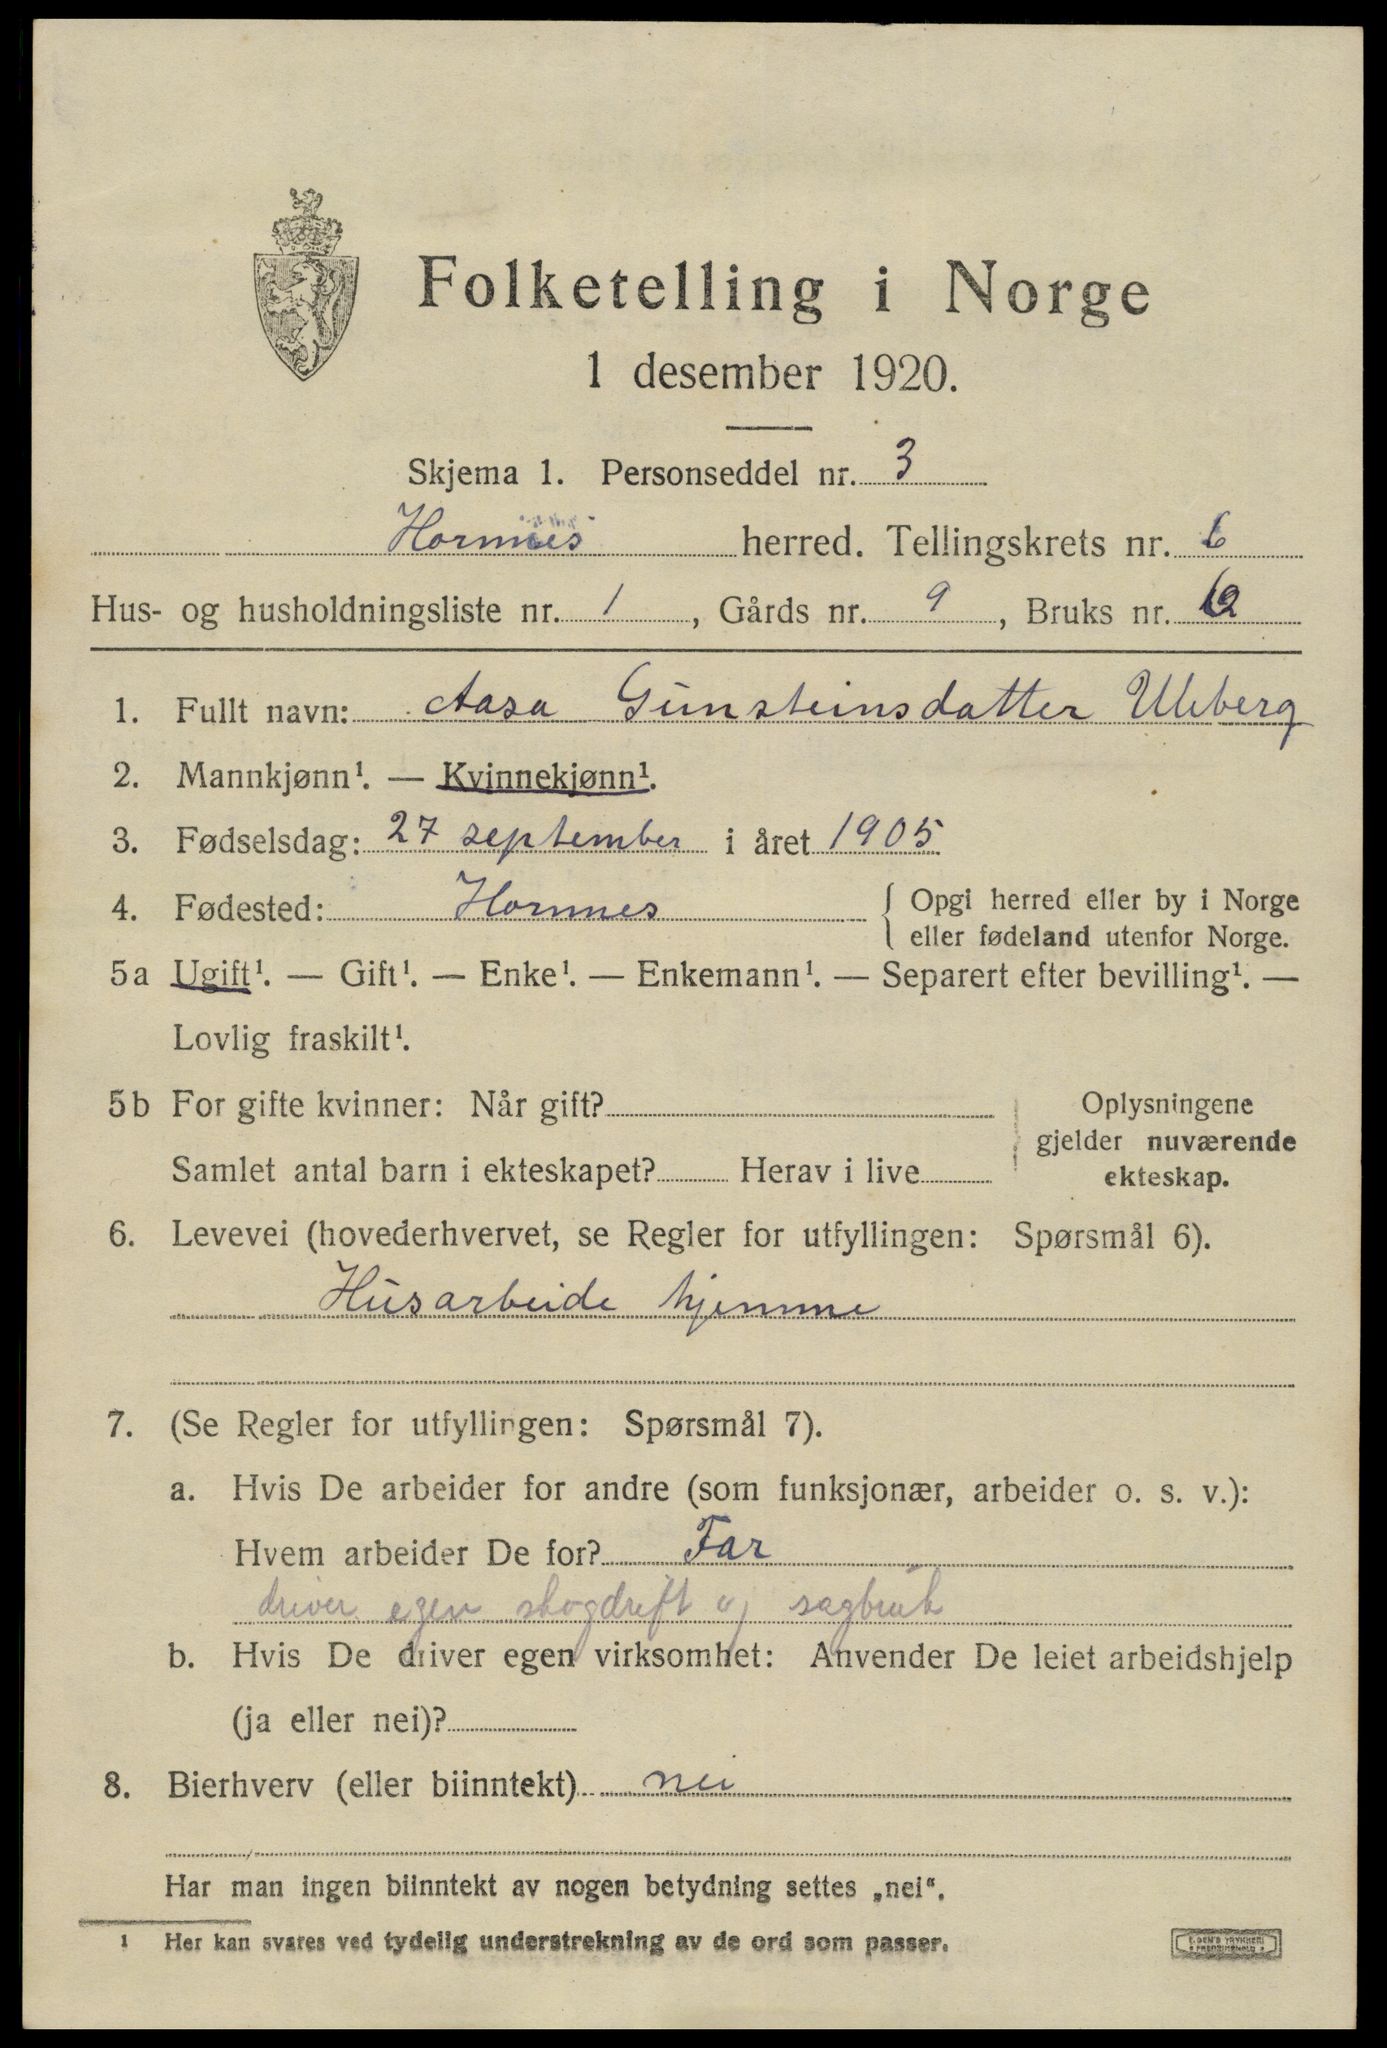 Folketelling i Norge
1 desember 1920.
Skjema 1. Personseddel nr. 3
Hornnes herred. Tellingskrets nr. 6
Hus- og husholdningsliste nr. 1, Gårds nr. 9, Bruks nr.
1. Fullt navn: Aasa Gunsteinsdatter Uleberg
2. Mannkjønn¹. — Kvinnekjønn¹.
3. Fødselsdag: 27 september i året 1905
4. Fødested: Hornnes { Opgi herred eller by i Norge
eller fødeland utenfor Norge.
5a Ugift¹. — Gift¹. — Enke¹. — Enkemann¹. — Separert efter bevilling¹. —
Lovlig fraskilt¹.
5b For gifte kvinner: Når gift? Oplysningene
gjelder nuværende
Samlet antal barn i ekteskapet? Herav i live ekteskap.
6. Levevei (hovederhvervet, se Regler for utfyllingen: Spørsmål 6).
Husarbeide hjemme
7. (Se Regler for utfyllingen: Spørsmål 7).
a. Hvis De arbeider for andre (som funksjonær, arbeider o. s. v.):
Hvem arbeider De for? Far
driver egen skogdrift og sagbruk
b. Hvis De driver egen virksomhet: Anvender De leiet arbeidshjelp
(ja eller nei)?
8. Bierhverv (eller biinntekt) nei
Har man ingen biinntekt av nogen betydning settes „nei“.
¹ Her kan svares ved tydelig understrekning av de ord som passer.